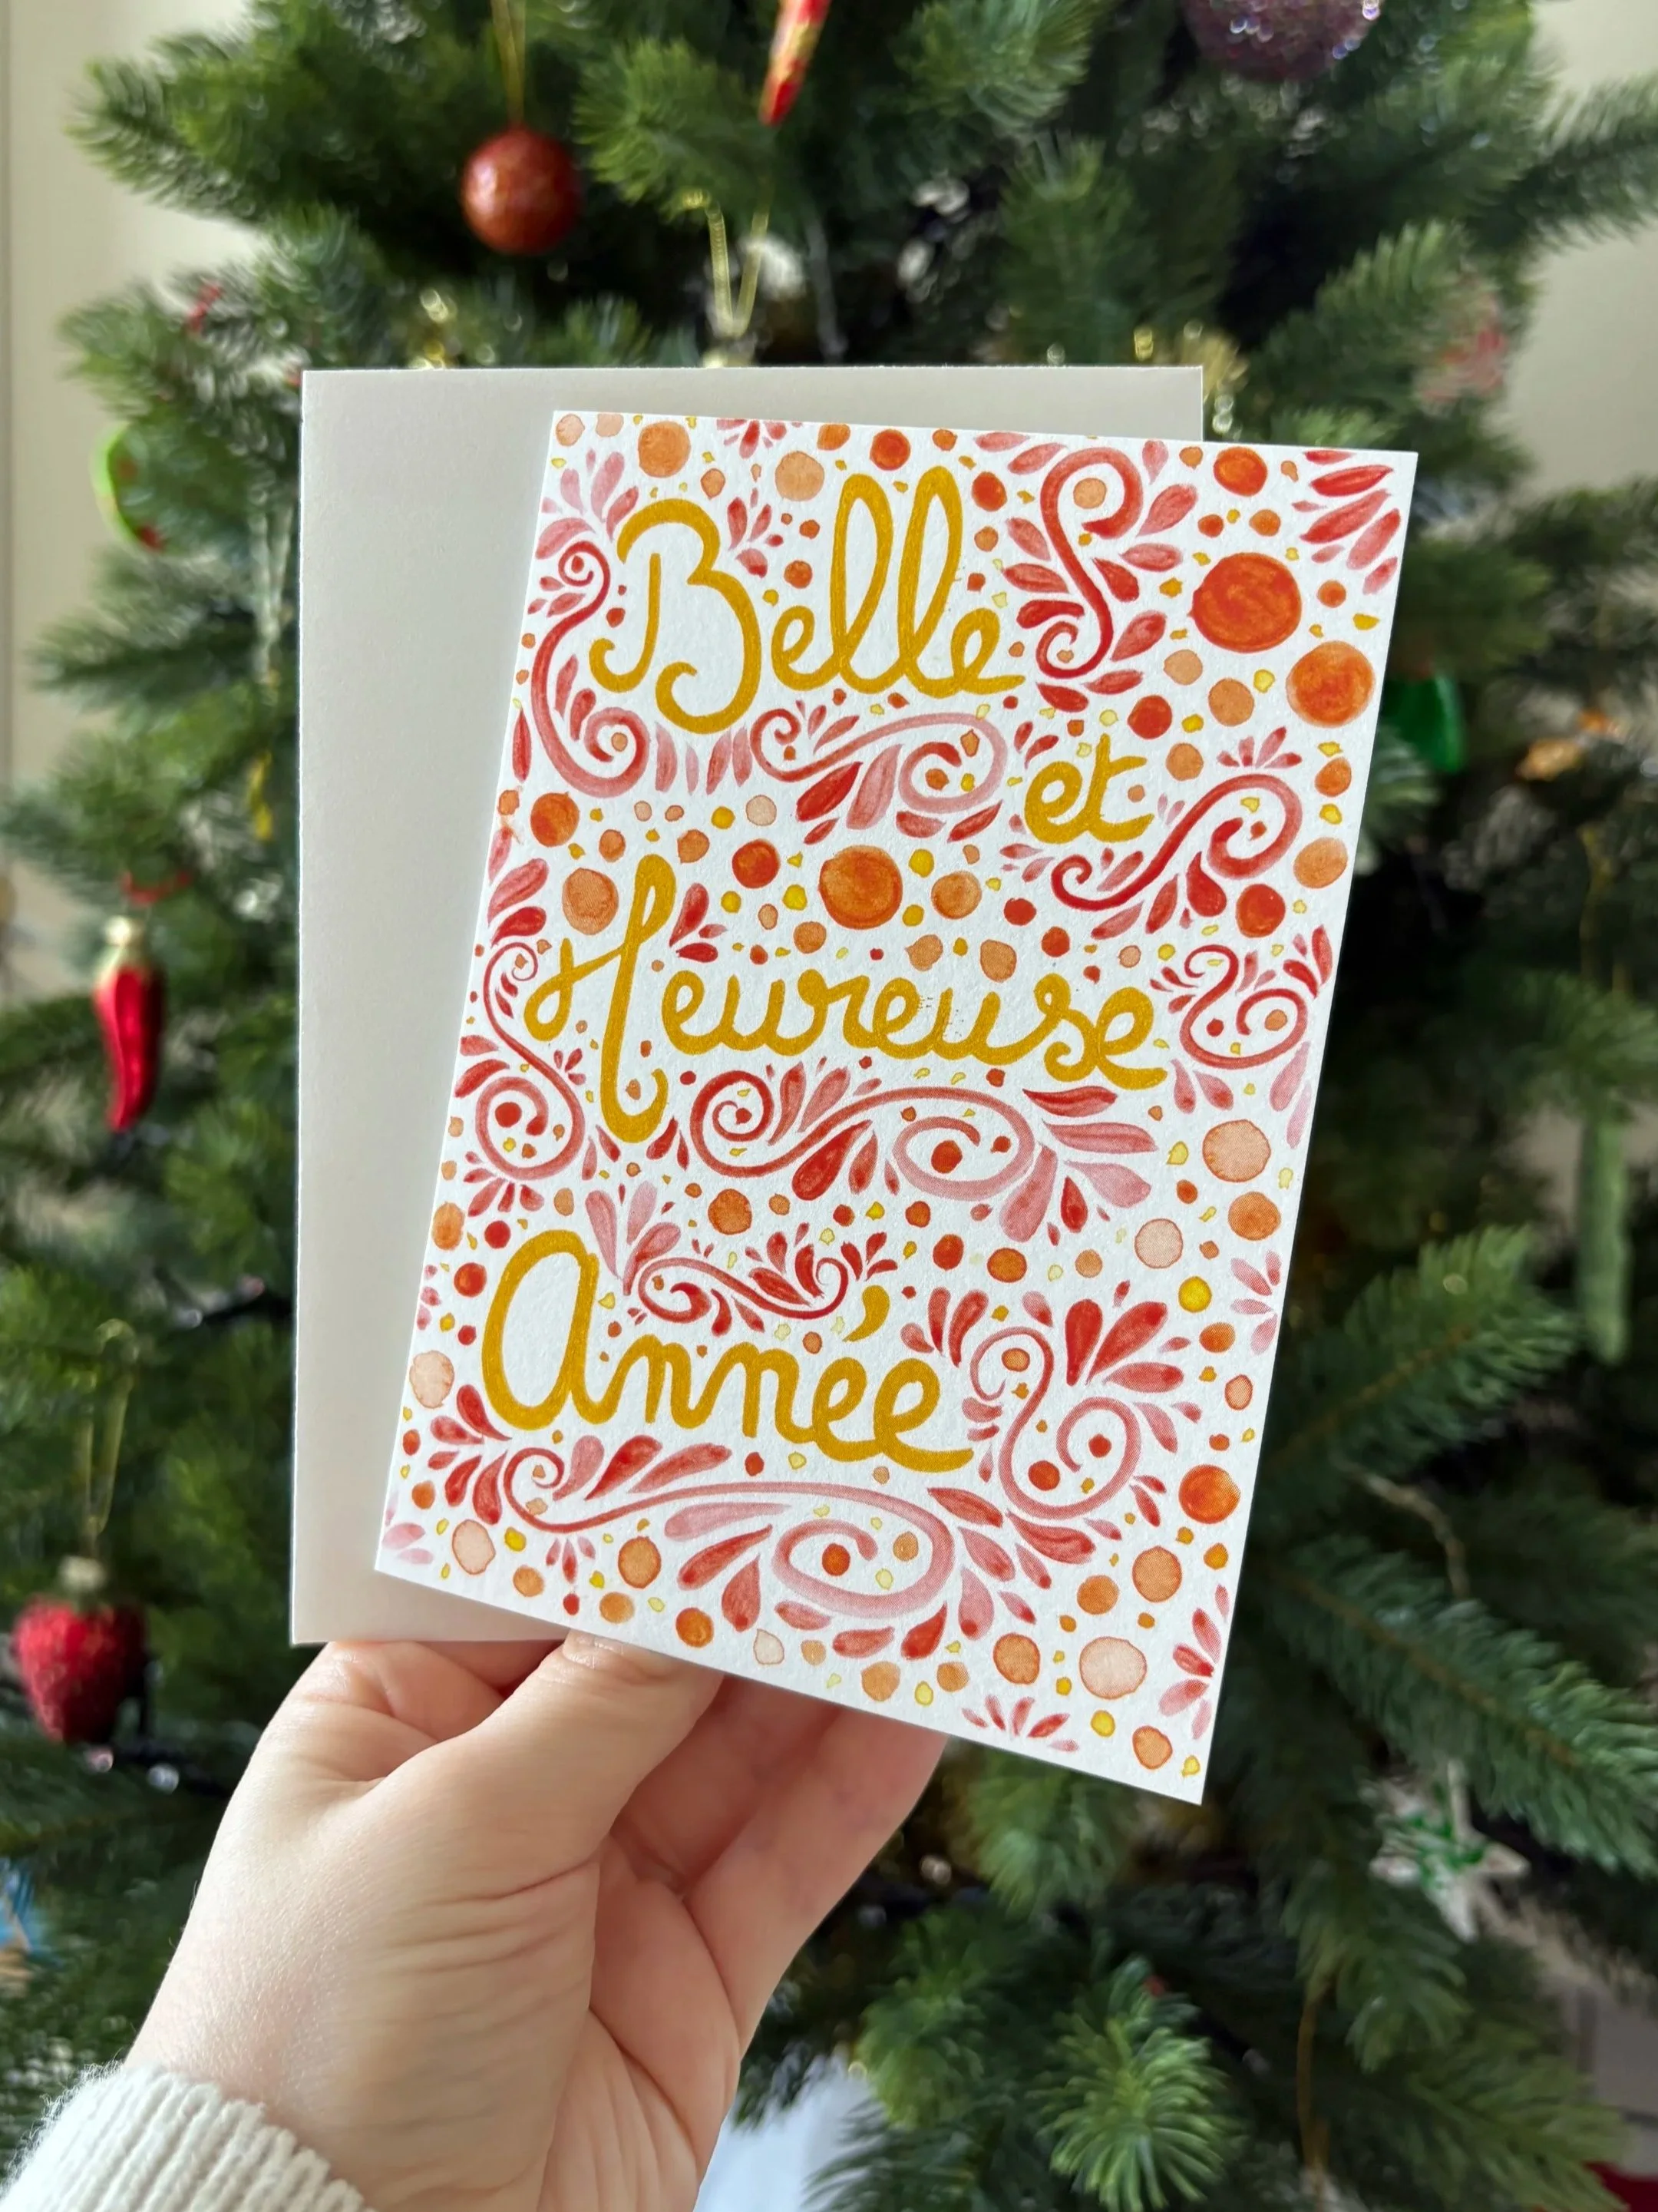 Belle
et
Heureuse
Année